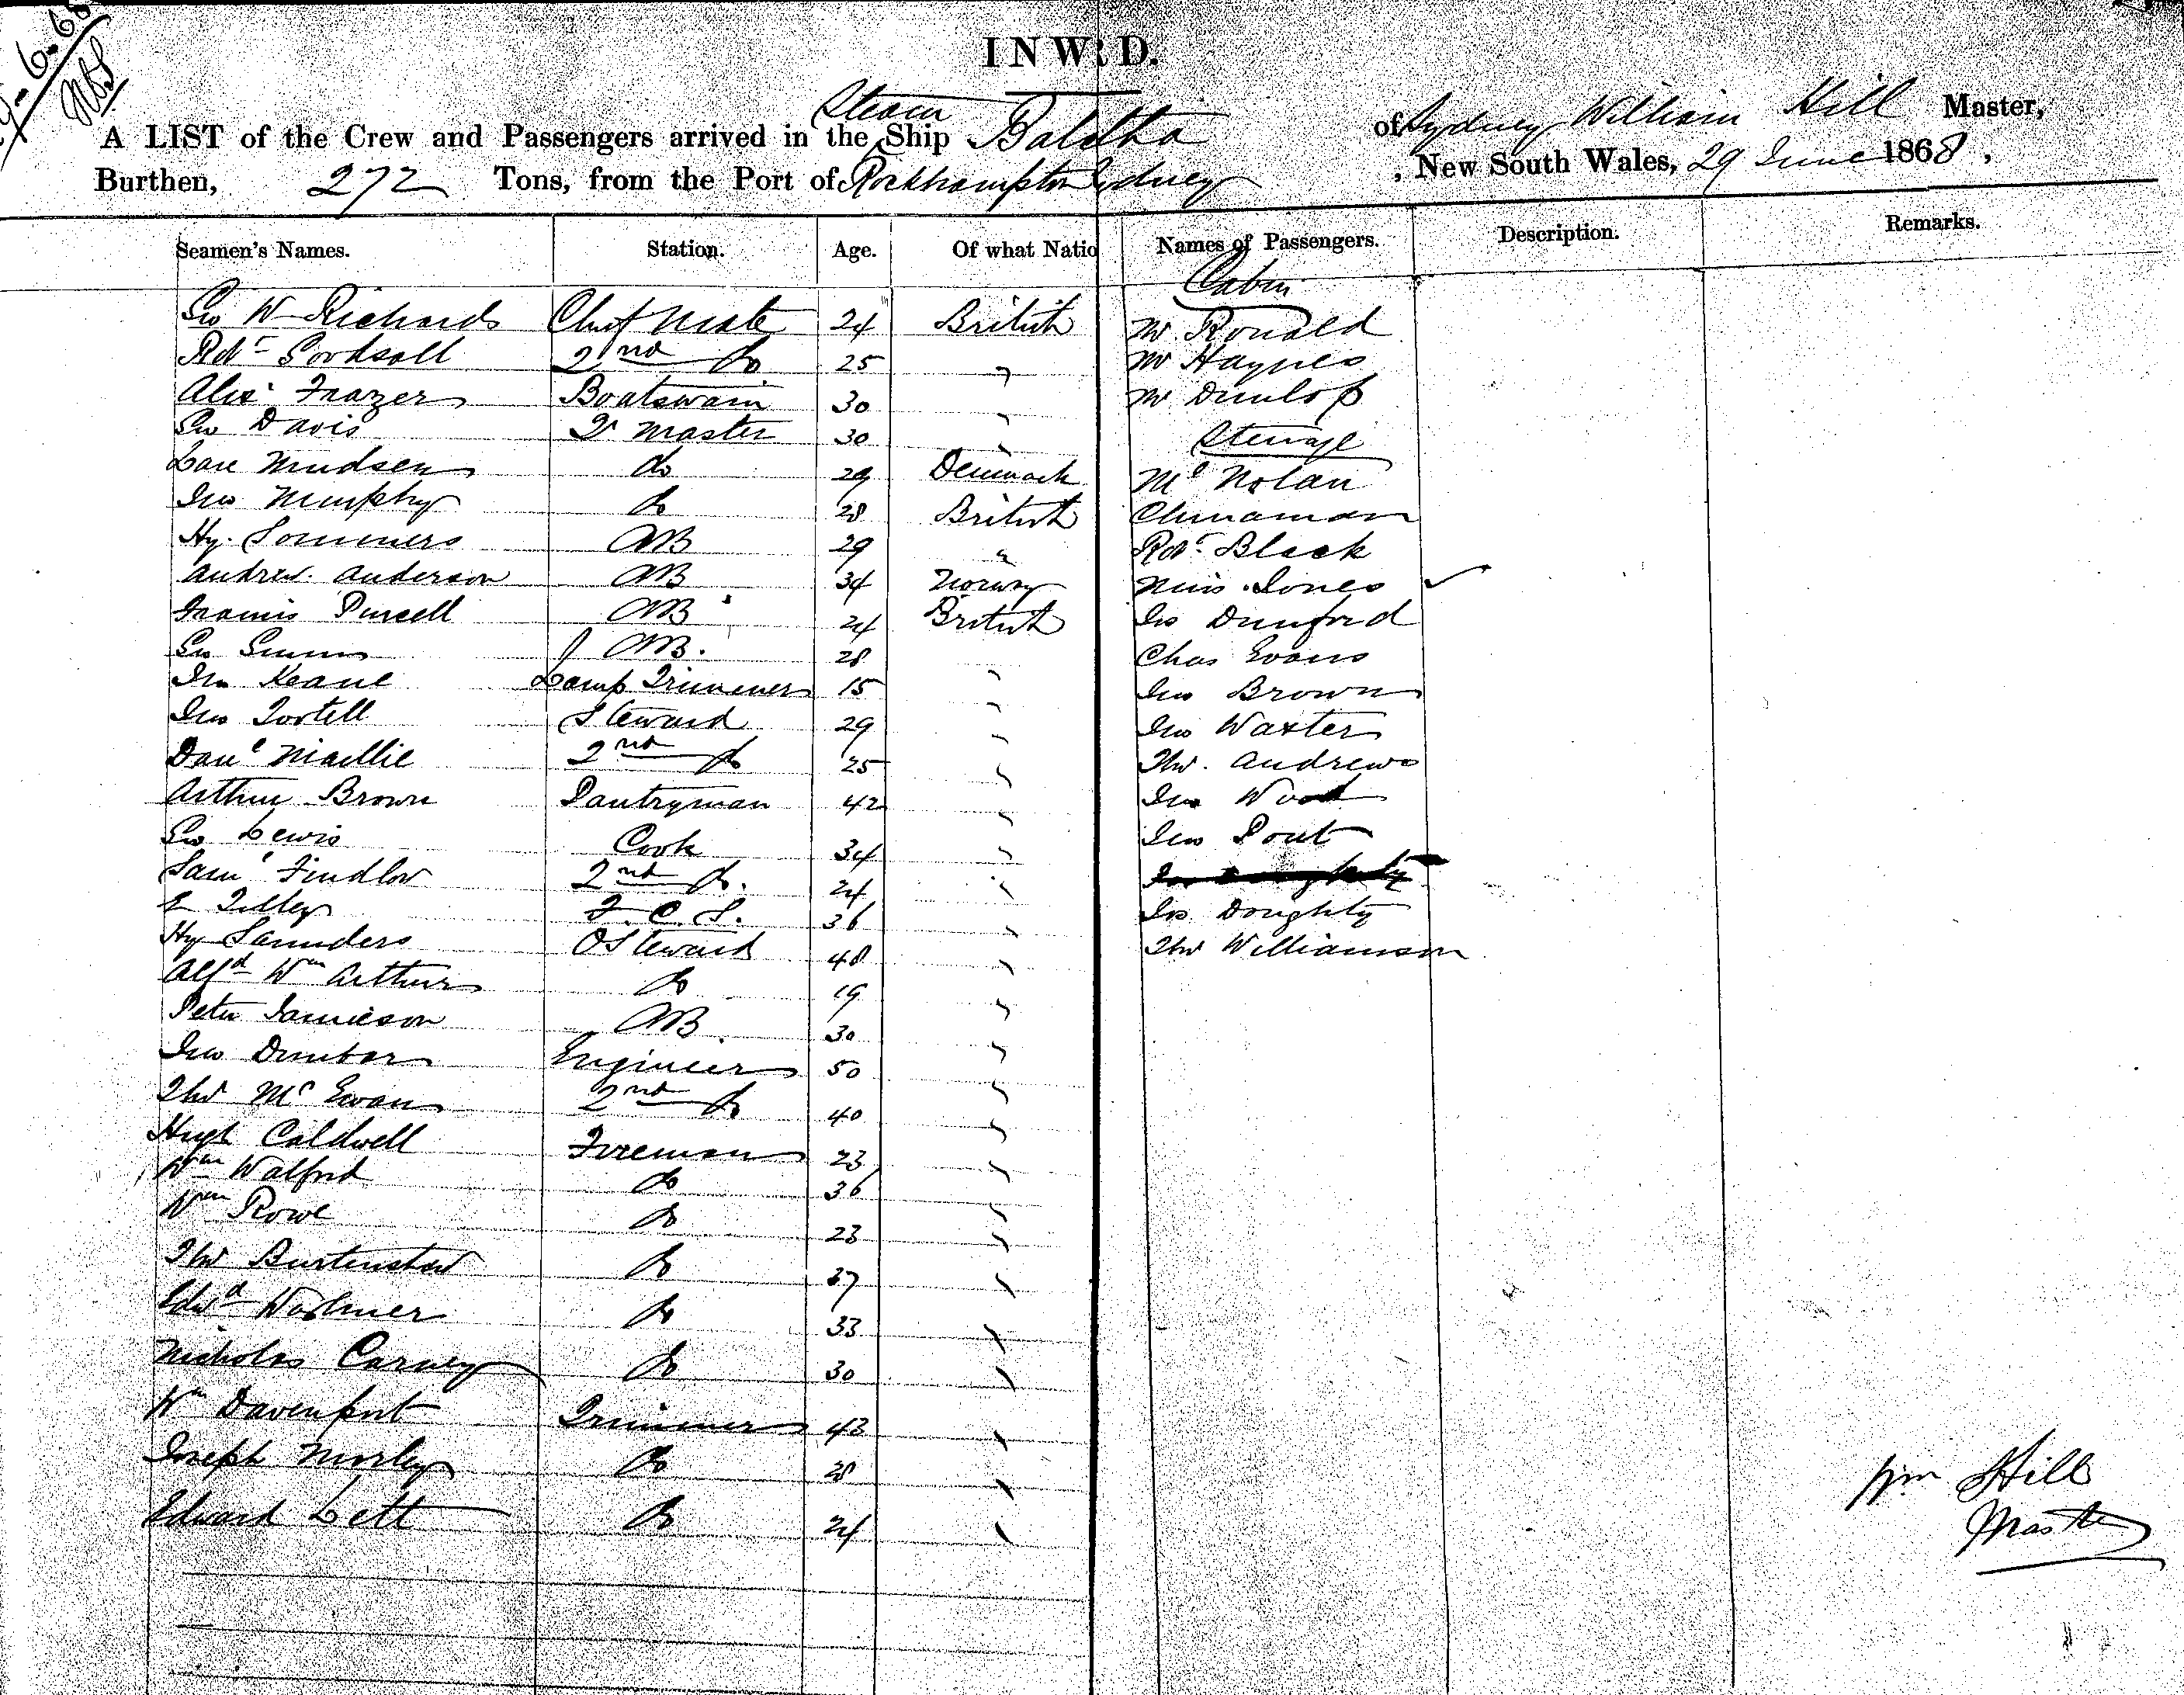 29-6-68
INWRD.
A LIST of the Crew and Passengers arrived in the Steam Ship Balclutha of Sydney William Hill Master,
Burthen, 272 Tons, from the Port of Rockhampton Sydney, New South Wales, 29 June 1868,
Seamen's Names. Station. Age. Of what Natio Names of Passengers. Description. Remarks.
Cabin
Geo W Richards Chief Mate 24 British Mr Ronald
Robt 2nd do 25 " Mr Haynes
Alex Frazer Boatswain 30 " Mr Dunlop
Geo Davis Qr Master 30 " Steerage
do 29 Denmark Nolan
Jno Murphy do 28 British Chinaman
Hy. Sommers AB 29 " Robt Black
Andrew Anderson AB 34 Norway Miss Jones ✓
Francis Purcell AB 24 British Jas Dunford
Geo Simms AB. 28 Chas Evans
Jno Keane Lamp Trimmer 15 " Jno Brown
Jno Tortell Steward 29 " Jno Waxter
Danl Maillie 2nd do 25 " Thos. Andrews
Arthur Brown Pantryman 42 " Jno Wood
Geo Lewis Cook 34 " Jno Pout
Saml Findlow 2nd do. 24 "
E Tilley F. C. S. 36 " Jas Doughty
Hy Saunders O Steward 48 " Thos Williamson
Alfd Wm Arthur do 19 "
Peter Jamieson AB 30 "
Jno Dunbar Engineer 50 "
Thos McEwan 2nd do 40 "
Hugh Caldwell Fireman 23 "
Wm Walford do 36 "
Wm Rowe do 23 "
Thos Burtenshaw do 37 "
Edwd do 33 "
Nicholas Carney do 30 "
Wm Davenport Trimmer 43 "
Joseph Morley do 28 "
Edward Lett do 24 "
Wm Hill
Master